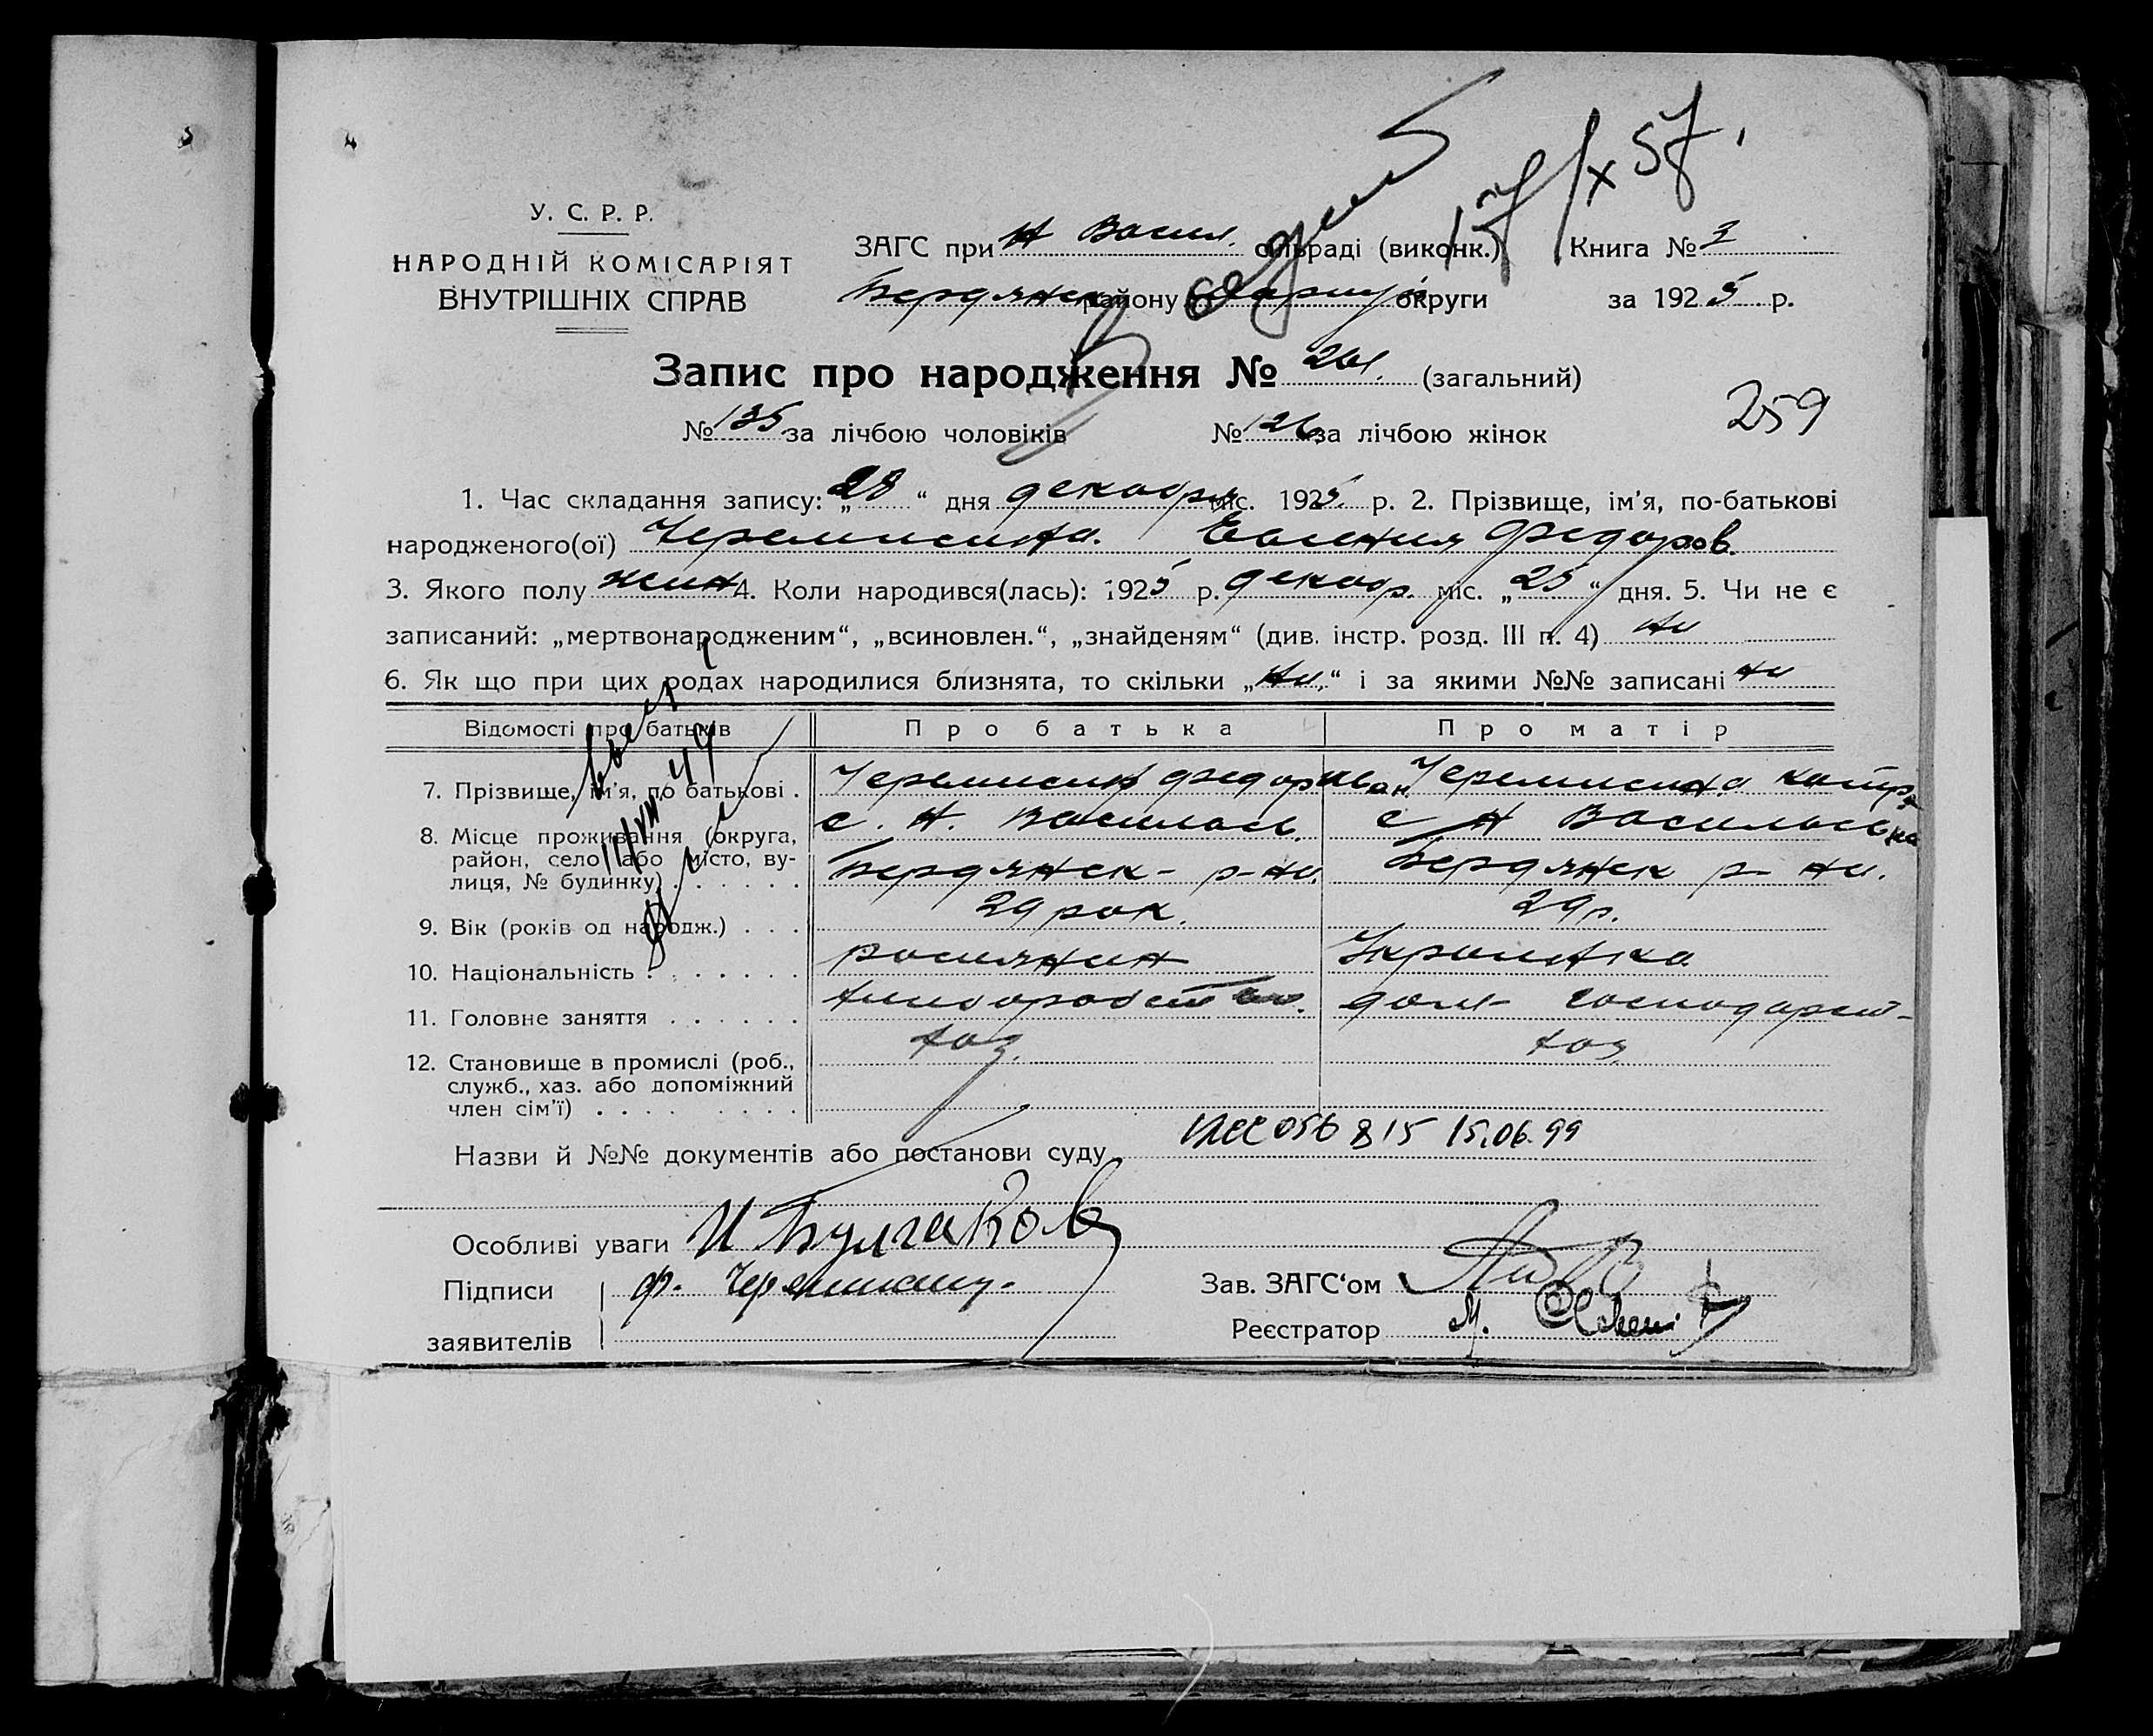 У. С. Р. Р.
НАРОДНІЙ КОМІСАРІЯТ
ВНУТРІШНІХ СПРАВ
ЗАГС при Н Васил. сільраді (виконк.) Книга № 3
Бердянск району округи за 1925 р.
17/X 57.
Запис про народження № 261. (загальний)
№ 135 за лічбою чоловіків № 126 за лічбою жінок
259
1. Час складання запису: „28“ дня декабря міс. 1925 р. 2. Прізвище, ім'я, по-батькові
народженого(ої) Черемисина. Федоров.
3. Якого полу жин 4. Коли народився(лась): 1925 р. декабр. міс. „25“ дня. 5. Чи не є
записаний: „мертвонародженим“, „всиновлен.“, „знайденям“ (див. інстр. розд. III п. 4) ни
6. Як що при цих родах народилися близнята, то скільки „ни.“ і за якими №№ записані ни
Відомості про батьків Про батька Про матір
7. Прізвище, ім'я, по батькові . Черемисин Федор Иван Черемисина Катр.
8. Місце проживання (округа, с. Н. Василась. с Н Василасьвка
район, село або місто, ву-
лиця, № будинку) . . . . . . Бердянск- р-ни. Бердянск р- ни.
11/VII 49
9. Вік (років од народж.) . . . 29 рок. 29 р.
10. Національність . . . . . . . росиянин Украинка
11. Головне заняття . . . . . . дом- господарст-
12. Становище в промислі (роб., хаз. хаз
служб., хаз. або допоміжний
член сім'ї) . . . . . . . . .
Назви й №№ документів або постанови суду 056815 15.06.99
Особливі уваги И Булгаков
Підписи Ф. Черемисин. Зав. ЗАГС'ом
заявителів Реєстратор М.